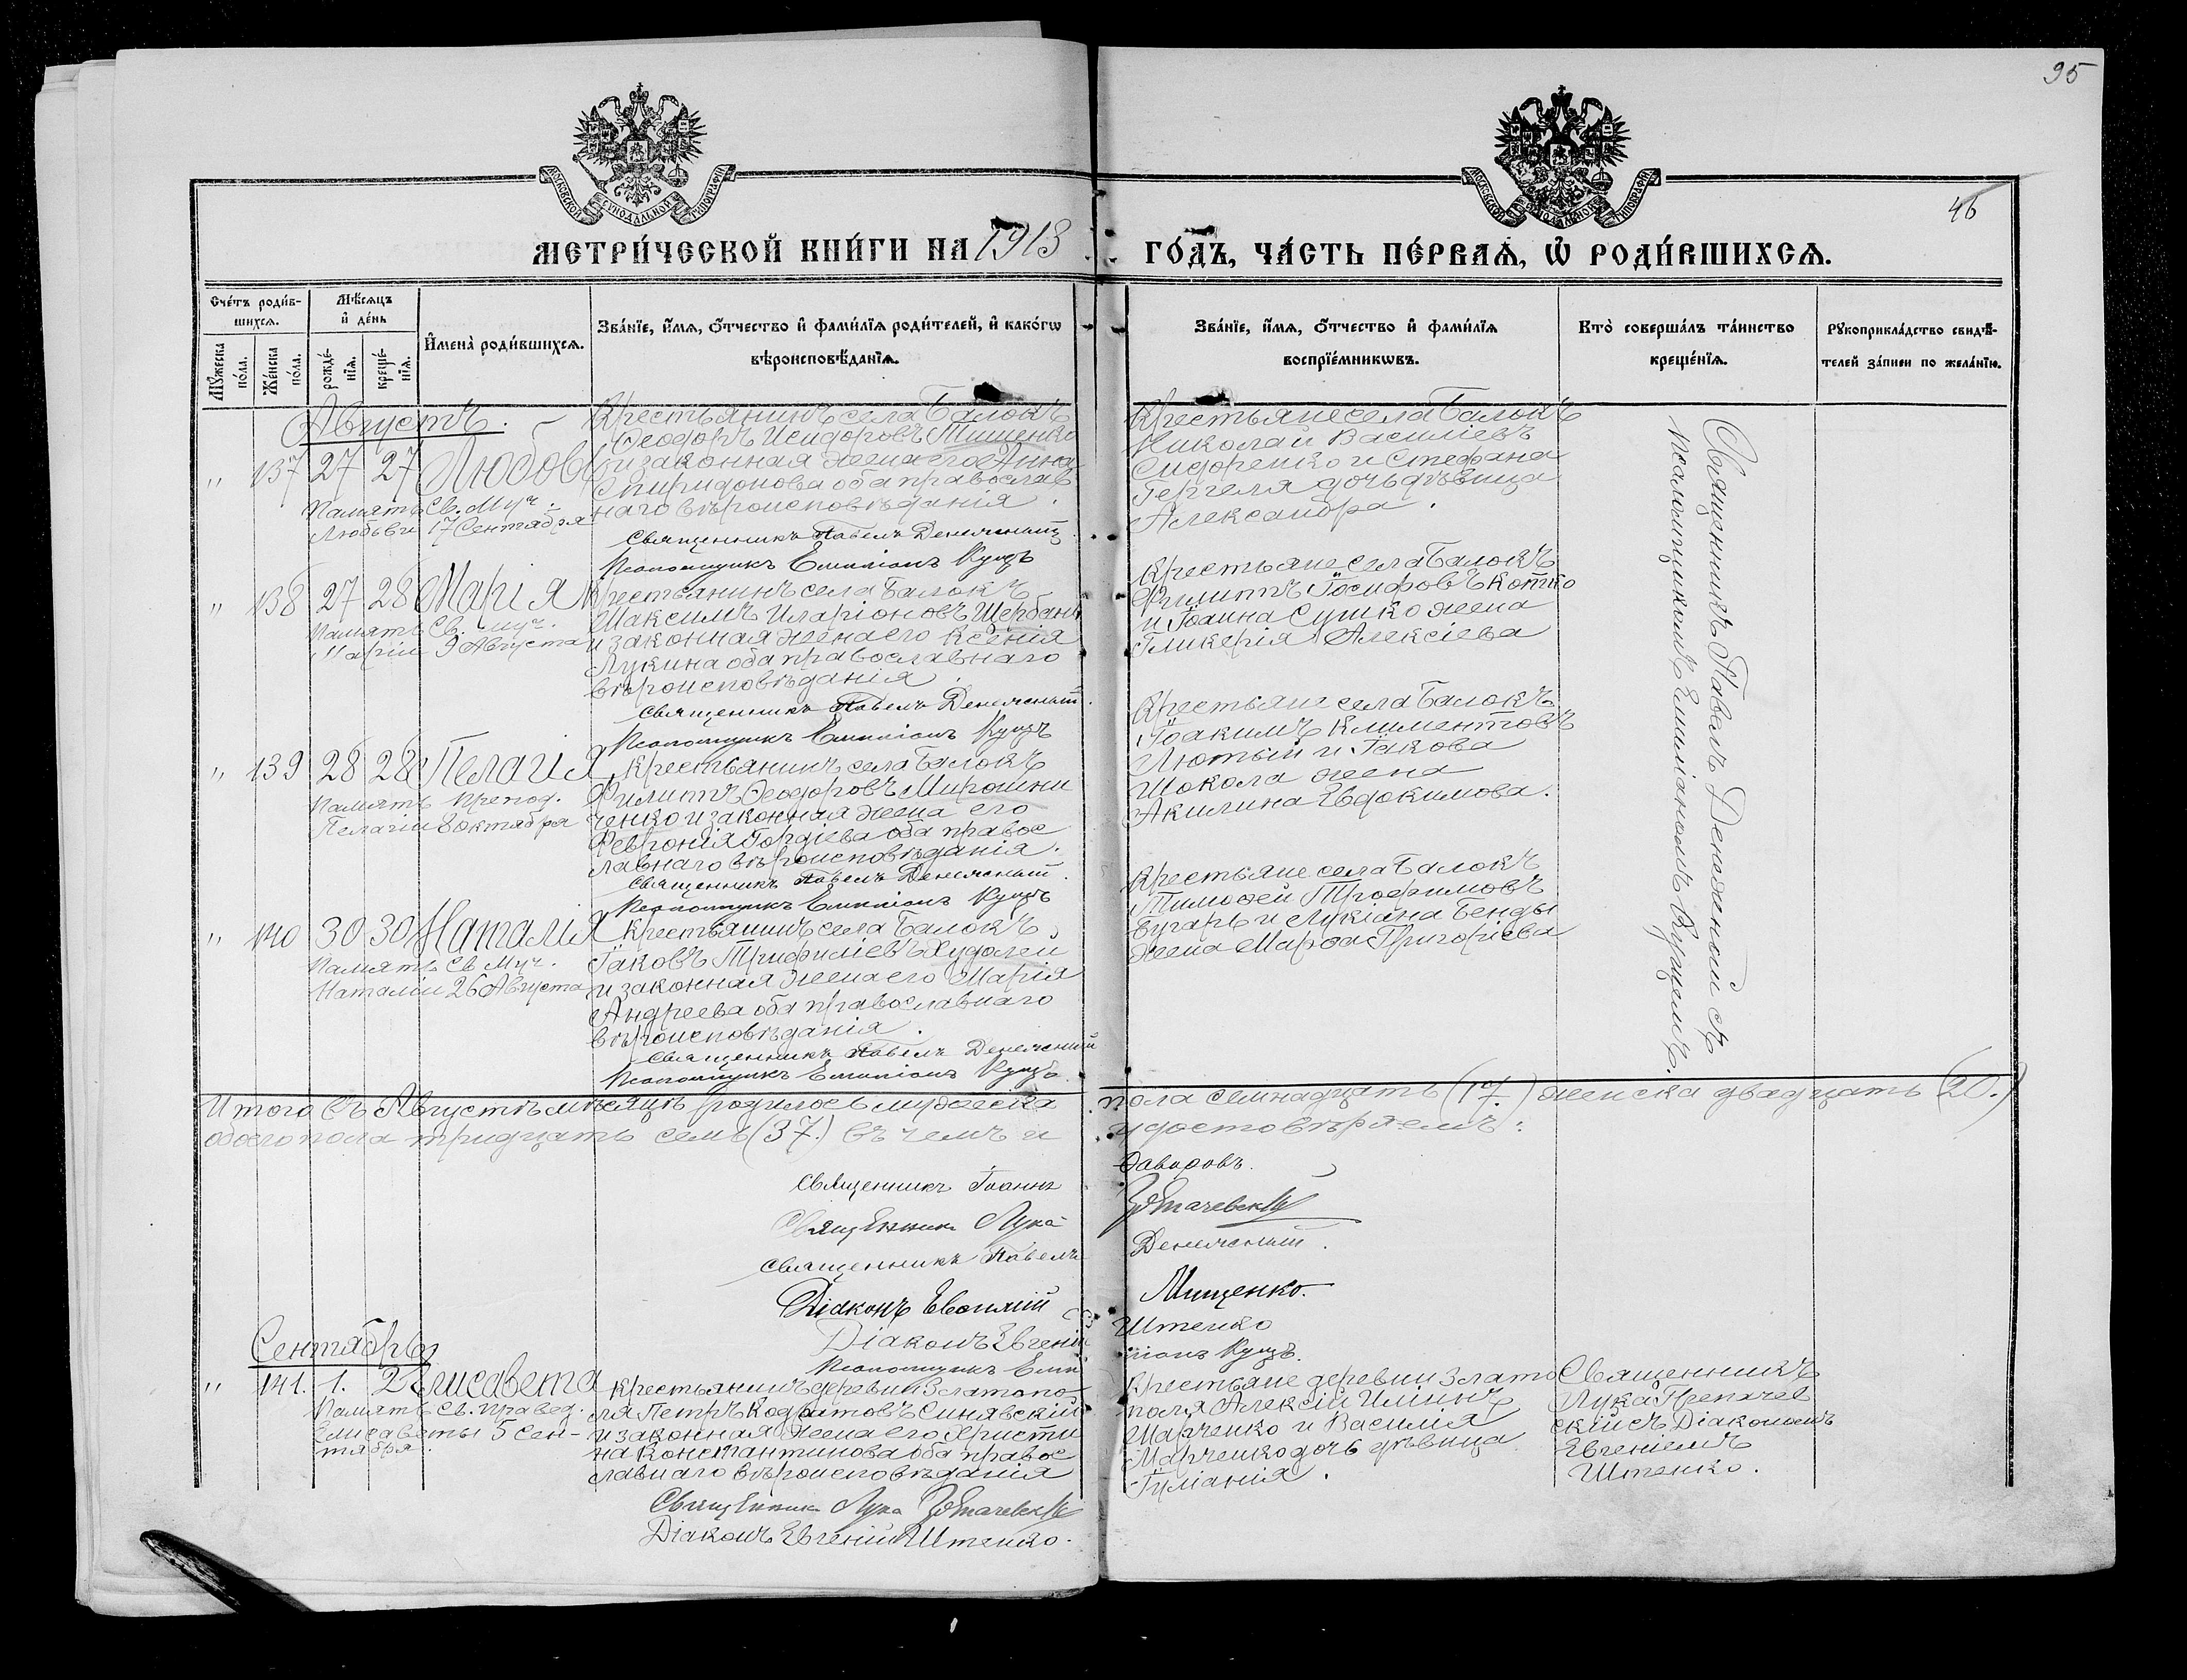 95
46
МОСКОВСКОЙ СУНОДАЛЬНОЙ ТИПОГРАФІИ
МОСКОВСКОЙ СУНОДАЛЬНОЙ ТИПОГРАФІИ
МЕТРИ́ЧЕСКОЙ КНИ́ГИ НА 1913 ГО́ДЪ, ЧА́СТЬ ПЕ́РВАѦ, Ѡ҆ РОДИ́ВШИХСѦ.
Сче́тъ роди́в-
шихсѧ.
Мꙋ́жеска по́ла.
Же́нска по́ла.
Мѣ́сѧцъ
и҆ де́нь
рожде́-
нїѧ.
креще́-
нїѧ.
И҆мена̀ роди́вшихсѧ.
Зва́нїе, и҆́мѧ, ѻ҆́тчество и҆ фами́лїѧ роди́телей, и҆ како́гѡ
вѣроисповѣ́данїѧ.
Зва́нїе, и҆́мѧ, ѻ҆́тчество и҆ фами́лїѧ
воспрїе́мникѡвъ.
Кто̀ соверша́лъ та́инство
креще́нїѧ.
Рꙋкоприкла́дство свидѣ́-
телей за́писи по жела́нїю.
Августъ.
„ 137 27 27 Любовь
Память Св. Муч.
Любови 17 Сентября
Крестьянинъ села Балокъ
Ѳеодоръ Исидоровъ Тищенко
и законная жена его Анна
Спиридонова оба православ
наго вѣроисповѣданія.
Священникъ Павелъ Денежный
Псаломщикъ Емиліанъ Кущъ
Крестьяне села Балокъ
Николай Василіевъ
Сидоренко и Стефана
Гергеля дочь дѣвица
Александра.
„ 138 27 28 Марія
Память Св. муч.
Маріи 9 Августа
Крестьянинъ села Балокъ
Максимъ Иларіоновъ Щербань
и законная жена его Ксенія
Лукина оба православнаго
вѣроисповѣданія
Священникъ Павелъ Денежный.
Псаломщикъ Емиліанъ Кущъ
Крестьяне села Балокъ
Филиппъ Іосифовъ Котко
и Іоанна Сушко жена
Гликерія Алексіева
„ 139 28 28 Пелагія
Память препод.
Пелагіи 8 октября
Крестьянинъ села Балокъ
Филиппъ Ѳеодоровъ Мирошни
ченко и законная жена его
Февронія Гордіева оба правос
лавнаго вѣроисповѣданія.
Священникъ Павелъ Денежный.
Псаломщикъ Емиліанъ Кущъ
Крестьяне села Балокъ
Іоакимъ Климентовъ
Лютый и Іакова
Шокола жена
Акилина Евдокимова.
„ 140 30 30 Наталія
Память Св Муч.
Наталіи 26 Августа
Крестьянинъ села Балокъ
Іаковъ Трифиліевъ Худолей
и законная жена его Марія
Андреева оба православнаго
вѣроисповѣданія.
Священникъ Павелъ Денежный
Псаломщикъ Емиліанъ Кущъ.
Крестьяне села Балокъ
Тимоѳей Трофимовъ
Бугарь и Лукіана Бенды
жена Марѳа Григоріева
Священникъ Павелъ Денежный съ
псаломщикомъ Емиліаномъ Кущемъ.
Итого въ Августѣ мѣсяцѣ родилось мужеска пола семнадцать (17.) женска двадцать (20.)
обоего пола тридцать семь (37.) въ чемъ и удостовѣряемъ:
Священникъ Іоаннъ
Священникъ Лука
Священникъ Павелъ Денежный.
Діаконъ Евѳимій Мищенко.
Діаконъ Евгеній Штенко
Псаломщикъ Емиліанъ Кущъ.
Сентябрь
„ 141. 1. 2 Елисавета
Память Св. правед.
Елисаветы 5 Сен-
тября.
Крестьянинъ деревни Златопо-
ля Петръ Кодратовъ Синявскій
и законная жена его Христи
на Константинова оба правос
лавнаго вѣроисповѣданія
Священникъ Лука
Діаконъ Евгеній Штенко.
Крестьяне деревни Злато
поля Алексій Иліинъ
Марченко и Василія
Марченко дочь дѣвица
Іуліанія.
Священникъ
Лука
скій съ Діакономъ
Евгеніемъ
Штенко.